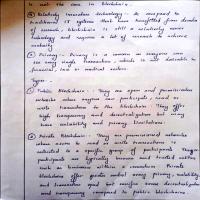 is not the case in blockchain.
④ Relatively immature technology: As compared to
traditional IT systems that have benefitted from decades
of research, blockchain is still a relatively new
technology and requires lot of research to achieve
maturity.
⑤ Privacy: Privacy is a concern as everyone can
see every single transaction, which is not desirable in
financial, law or medical sectors.
Types:-
① Public Blockchain:- They are open and permissionless
networks where anyone can participate, read or
write transactions to the blockchain. They offer
high transparency and decentralization but may
have scalability and privacy limitations.
② Private Blockchain:- They are permissioned networks
where access to read or write transactions is
restricted to a specific group of participants. These
participants are typically known and trusted entities
such as businesses within a consortium. Private
blockchains offer greater control, privacy, scalability
and transaction speed but sacrifice some decentralization
and transparency compared to public blockchains.